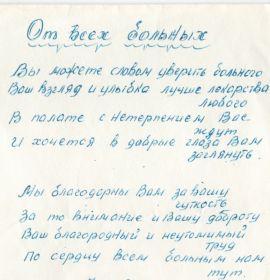 От всех больных
Вы можете словом уверить больного
Ваш взгляд и улыбка лучше лекарства
любого
В палате с нетерпением Вас
ждут
И хочется в добрые глаза Вам
заглянуть.
Мы благодарны Вам за Вашу
чуткость
За то внимание и Вашу доброту
Ваш благородный и неутомимый
труд
По сердцу всем больным нам
тут.